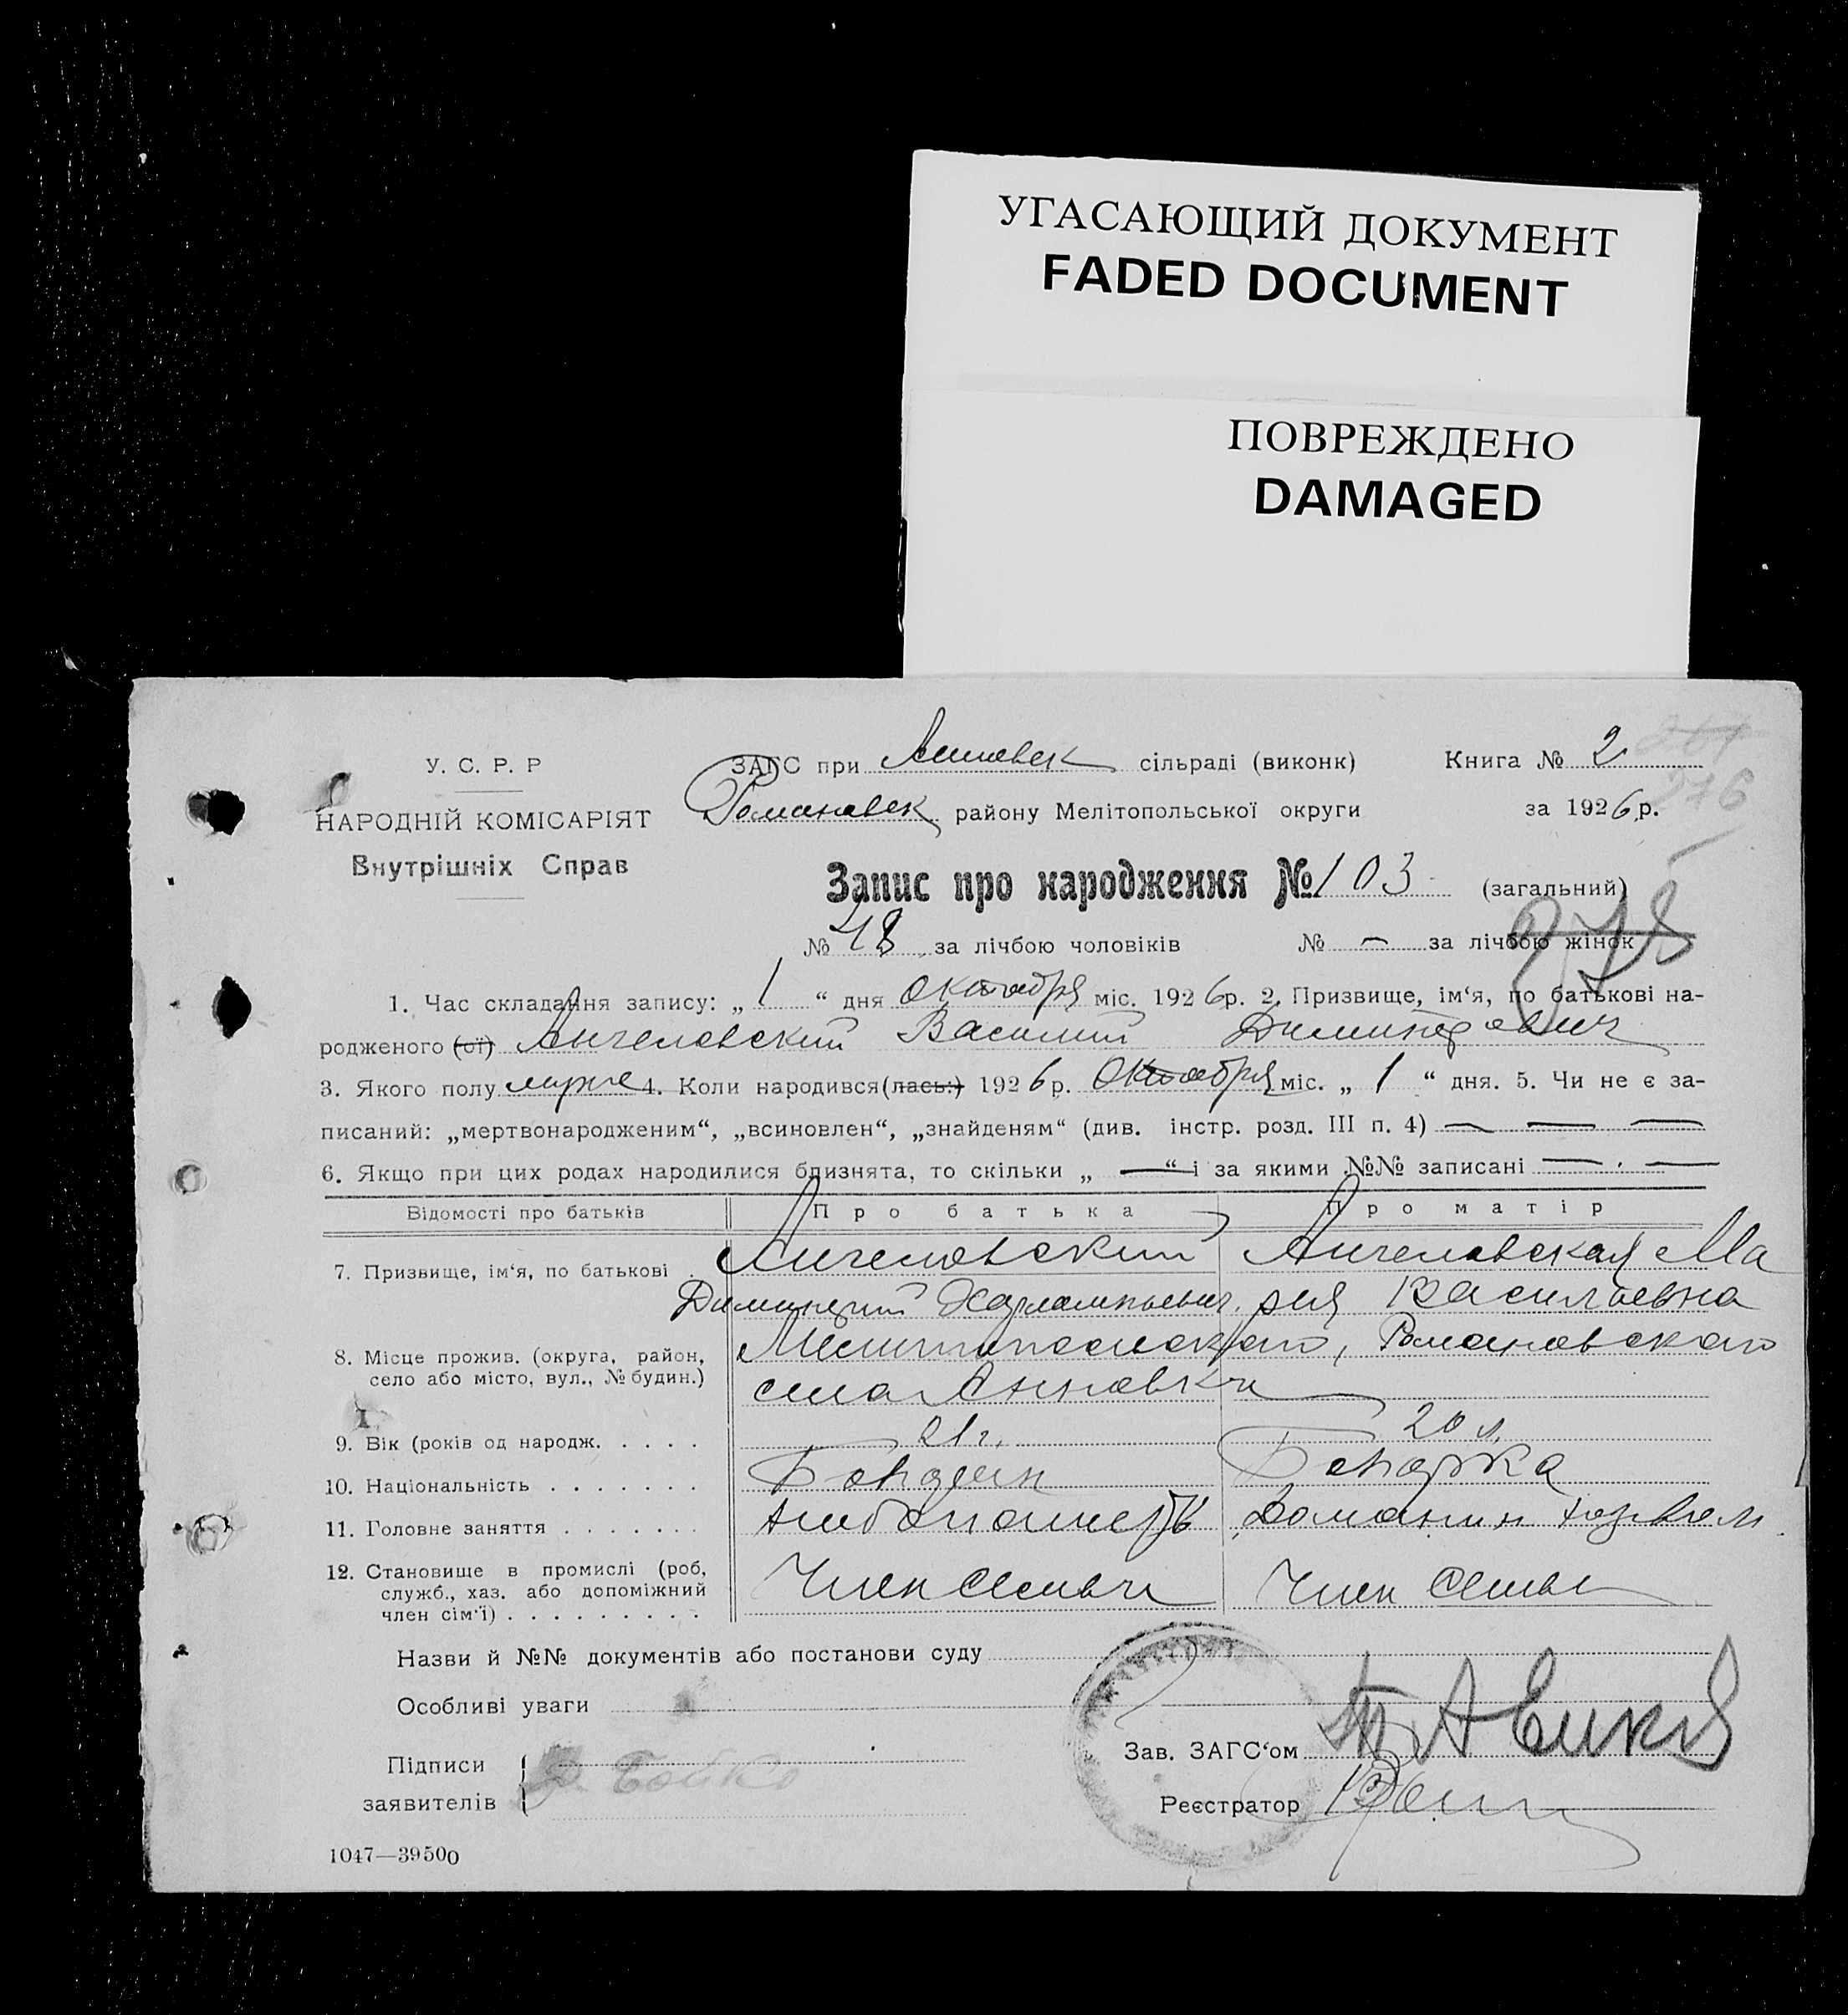 УГАСАЮЩИЙ ДОКУМЕНТ
FADED DOCUMENT
ПОВРЕЖДЕНО
DAMAGED
У. С. Р. Р
НАРОДНІЙ КОМІСАРІЯТ
Внутрішніх Справ
ЗАГС при Анновск сільраді (виконк) Книга № 2
276
Романовск району Мелітопольської округи за 1926 р.
Запис про народження № 103 (загальний)
№ 48 за лічбою чоловіків № — за лічбою жінок
1. Час складання запису: „ 1 “ дня октября міс. 1926 р. 2. Призвище, ім‘я, по батькові на-
родженого (ої) Ангеловский Василий Димитрович
3. Якого полу муже 4. Коли народився(лась:) 1926 р. Октября міс. „ 1 “ дня. 5. Чи не є за-
писаний: „мертвонародженим“, „всиновлен“, „знайденям“ (див. інстр. розд. III п. 4) — — —
6. Якщо при цих родах народилися близнята, то скільки „ — “ і за якими №№ записані — . —
Відомості про батьків Про батька Про матір
7. Призвище, ім‘я, по батькові . Ангеловский Ангеловская Ма
Димитрий Харлампьевич. рия Васильевна
8. Місце прожив. (округа, район, Мелитопольского, Романовского
село або місто, вул., № будин.) села Анновки
9. Вік (років од народж. . . . . 21 г. 20 л.
10. Національність . . . . . . .
11. Головне заняття . . . . . . . хлебопашество Домашн
12. Становище в промислі (роб, Член семьи Член семьи
служб., хаз. або допоміжний
член сім‘ї) . . . . . . . . .
Назви й №№ документів або постанови суду
Особливі уваги
Зав. ЗАГС‘ом
Підписи
заявителів Бойко
Реєстратор
1047—39500